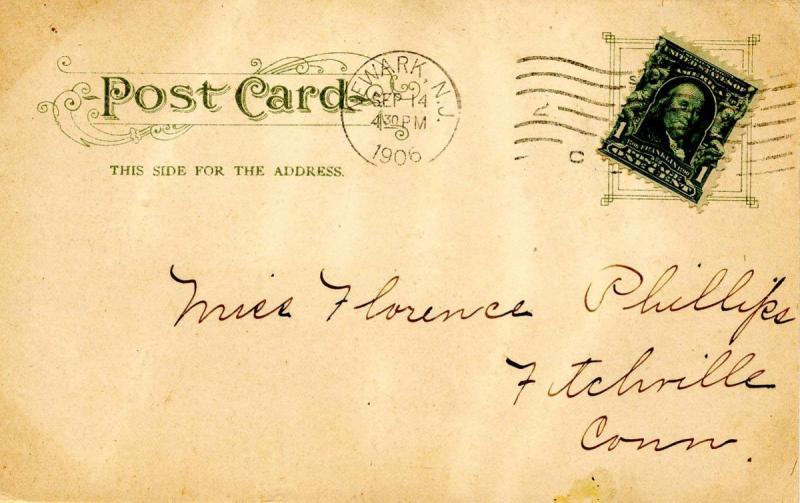 Post Card
THIS SIDE FOR THE ADDRESS.
NEWARK, N.J.
SEP 14
4 30 PM
1906
2
C
UNITED STATES OF
AMERICA
1 1
ONE CENT
Miss Florence Phillips
Fitchville
Conn.